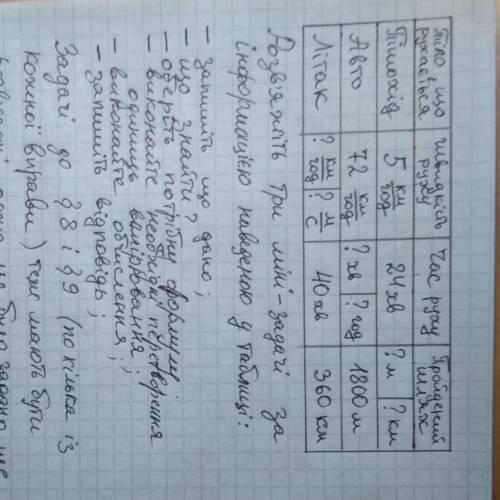 Тіло що рухається | Швидкість руху | Час руху | Пройдений шлях
Пішохід | 5 км/год | 24 хв | ? м | ? км
Авто | 72 км/год | ? хв | ? год | 1800 м
Літак | ? км/год | ? м/с | 40 хв | 360 км
Розв'яжіть три міні-задачі за
інформацією наведеною у таблиці:
– запишіть що дано;
– що знайти?
– оберіть потрібну формулу;
– виконайте необхідні перетворення
одиниць вимірювання;
– виконайте обчислення;
– запишіть відповідь;
Задачі до § 8 і § 9 (по кілька із
кожної вправи) теж мають бути